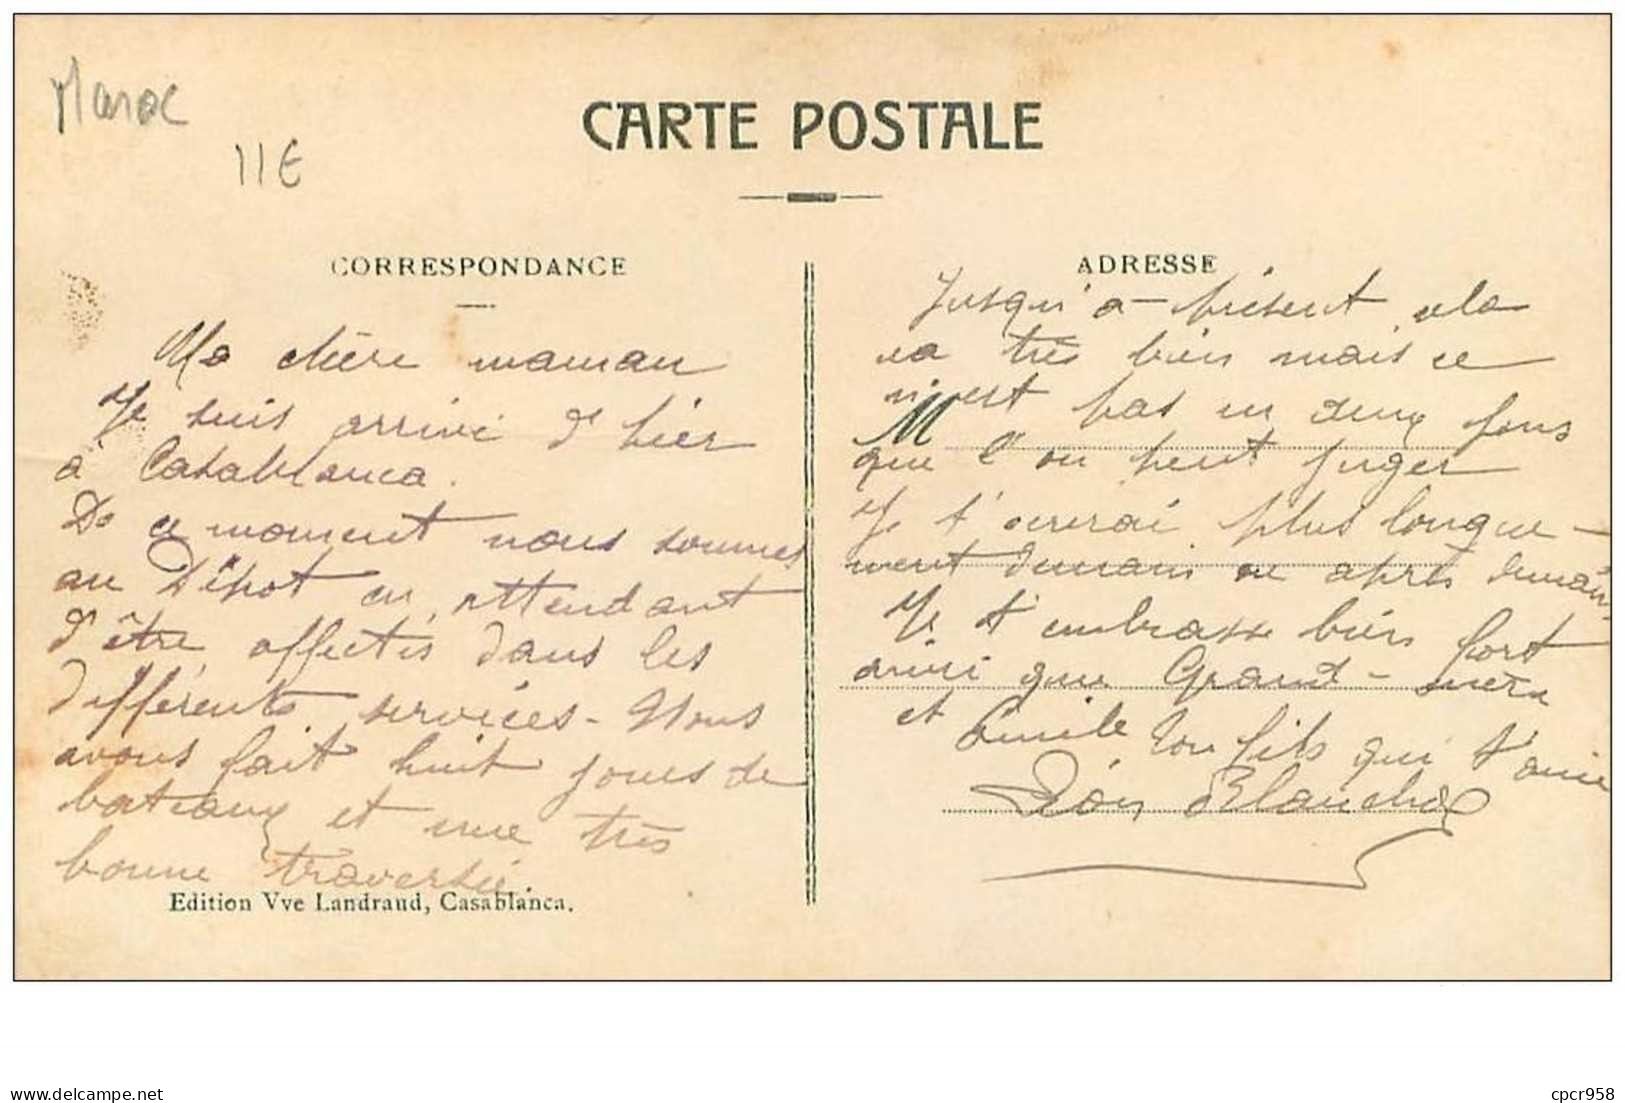 Maroc
11€
CARTE POSTALE
CORRESPONDANCE
Ma chère maman
Je suis arrivé d'hier
à Casablanca.
De ce moment nous sommes
au Dépot en attendant
d'être affectés dans les
différents services - Nous
avons fait huit jours de
bateaux et une très
bonne traversée.
Edition Vve Landraud, Casablanca.
ADRESSE
Jusqu'à-présent cela
va très bien mais ce
n'est pas en deux jours
M
que l'on peut juger
Je t'écrirai plus longue-
ment demain ou après demain
Je t'embrasse bien fort
ainsi que Grand-mère
et Emile Ton fils qui t'aime
Blanchot
delcampe.net
cpcr958